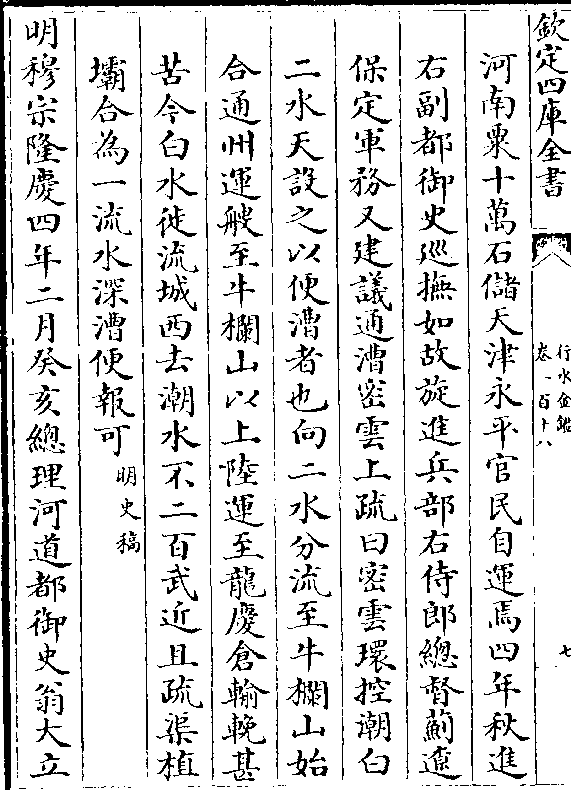 欽定四庫全書
行水金鑑
卷一百十八
七
河南粟十萬石儲天津永平官民自運焉四年秋進
右副都御史廵撫如故旋進兵部右侍郎總督薊遼
保定軍務又建議通漕密雲上疏曰密雲環控潮白
二水天設之以便漕者也向二水分流至牛欄山始
合通州運艘至牛欄山以上陸運至龍慶倉輸輓甚
苦今白水徙流城西去潮水不二百武近且疏渠植
壩合為一流水深漕便報可明史稿
明穆宗隆慶四年二月癸亥總理河道都御史翁大立